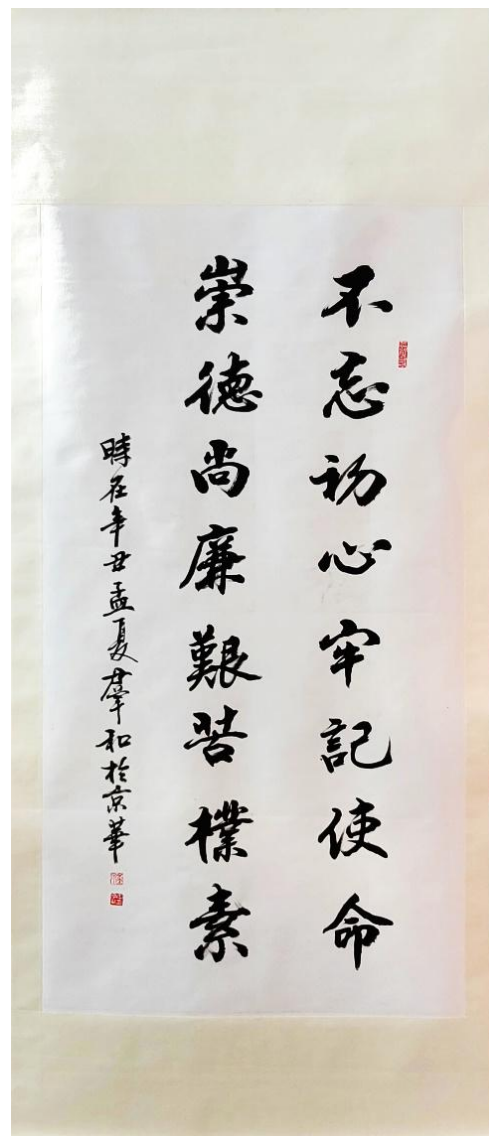 不忘初心牢記使命
崇德尚廉艱苦樸素
時在辛丑孟夏群和於京華